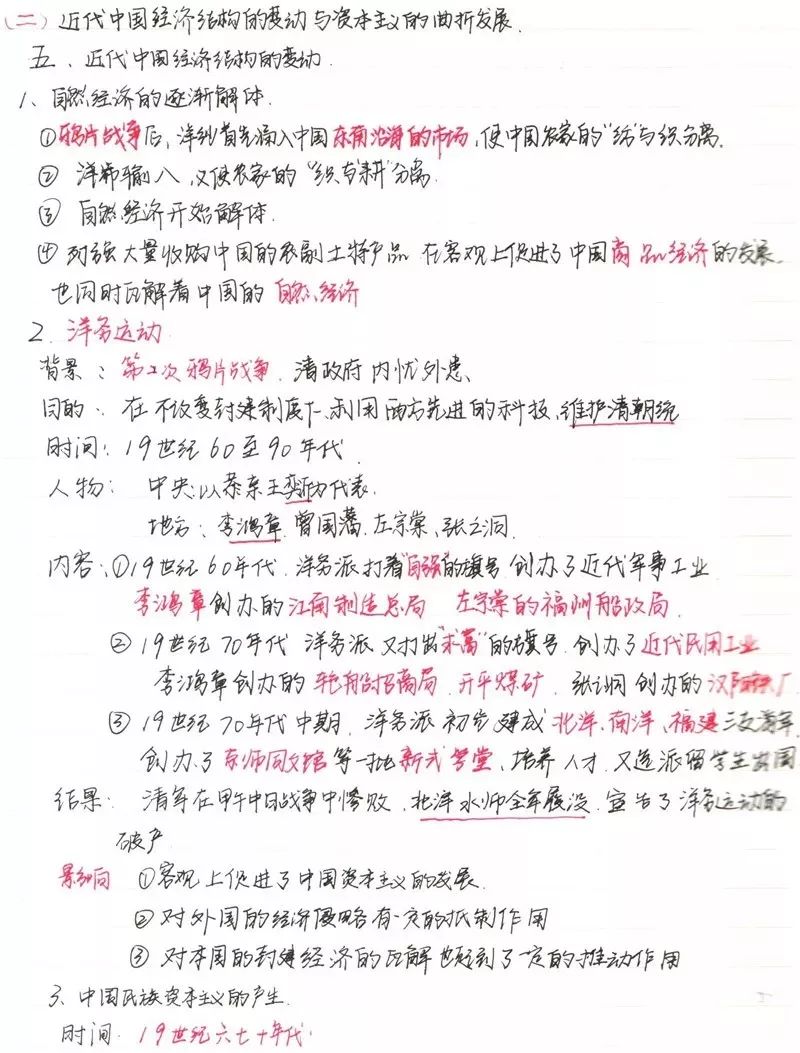 (二) 近代中国经济结构的变动与资本主义的曲折发展.
五、近代中国经济结构的变动
1、自然经济的逐渐解体.
①鸦片战争后,洋纱首先涌入中国东南沿海的市场,使中国农家的“纺”与织分离.
② 洋布输入,又使农家的“织与耕”分离.
③ 自然经济开始解体.
④ 列强大量收购中国的农副土特产品 在客观上促进了中国商品经济的发展,
也同时瓦解着中国的 自然经济
2. 洋务运动
背景:第二次鸦片战争.清政府内忧外患、
目的:在不改变封建制度下、利用西方先进的科技,维护清朝统
时间:19世纪60至90年代.
人物: 中央:以恭亲王奕䜣为代表.
地方:李鸿章 曾国藩、左宗棠、张之洞.
内容:①19世纪60年代.洋务派打着“自强”的旗号 创办了近代军事工业
李鸿章创办的江南制造总局 左宗棠的福州船政局.
② 19世纪70年代 洋务派又打出“求富”的旗号.创办了近代民用工业
李鸿章创办的 轮船招商局 开平煤矿. 张之洞创办的汉阳铁厂
③ 19世纪70年代中期.洋务派初步建成 北洋、南洋、福建三支海军
创办了京师同文馆等一批新式学堂、培养人才.又选派留学生出国
结果: 清军在甲午中日战争中惨败.北洋水师全军覆没.宣告了洋务运动的
破产.
影响 ①客观上促进了中国资本主义的发展.
② 对外国的经济侵略有一定的抵制作用
③ 对本国的封建经济的瓦解也起到了一定的推动作用
3、中国民族资本主义的产生.
时间.19世纪六七十年代.